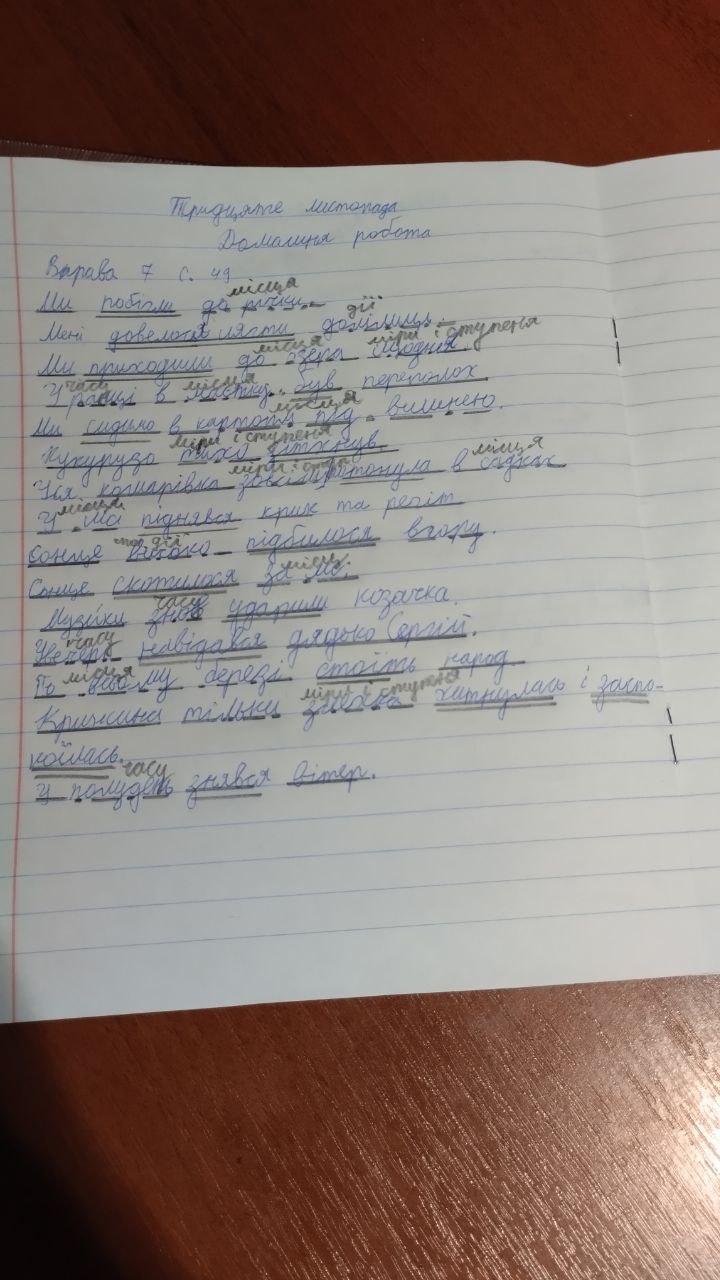 Тридцяте листопада
Домашня робота
Вправа 7 с. 49
місця
Ми побігли до річки.
дії
Мені довелося лягти долілиць.
місця міри і ступеня
Ми приходили до озера щодня.
часу місця
У ранці в був переполох
місця
Ми сидимо в картоплі під вишнею.
міри і ступеня
Кукурудза тихо зітхнув.
міри і ступ місця
Уся комарівка зовсім потонула в садках
місця
У піднявся крик та регіт
дії
Сонце високо підбилося вгору.
місця
Сонце скотилося за ліс.
часу
Музики знов ударили козачка.
часу
Увечері навідався дядько Сергій.
місця
По березі стоїть народ
міри і ступеня
Крижина тільки хитнулась і заспо-
коїлась.
часу
У полудень знявся вітер.